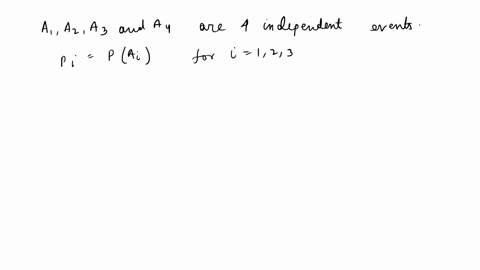 A₁, A₂, A₃ and A₄ are 4 independent events.
pᵢ = P(Aᵢ) for i = 1, 2, 3